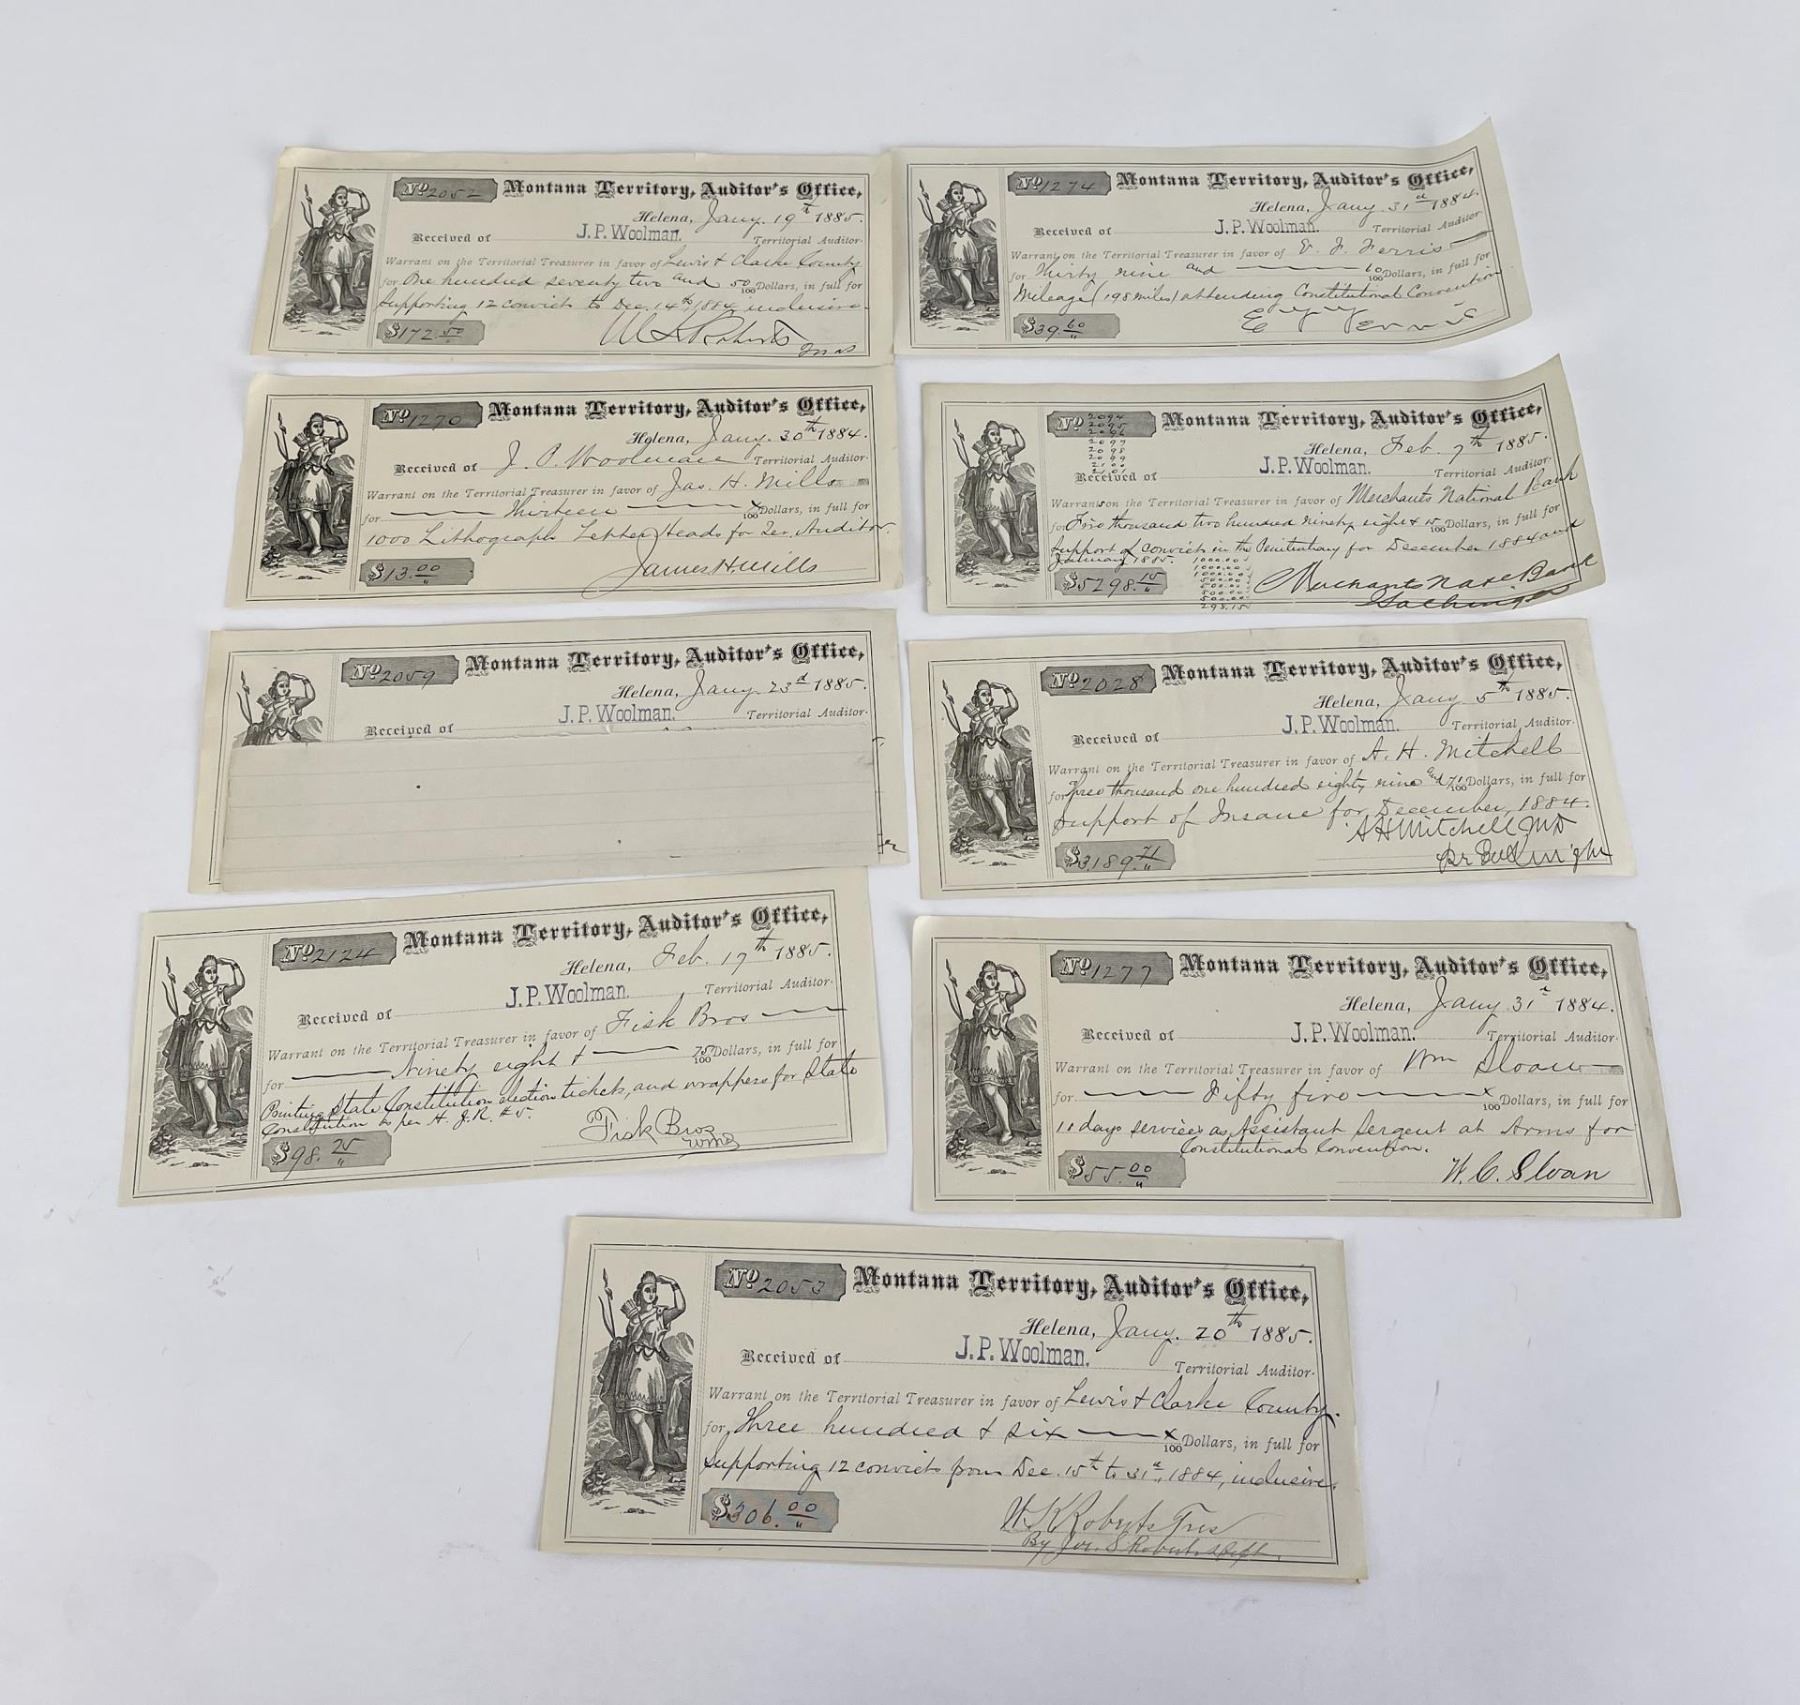 No 2052 Montana Territory, Auditor's Office,
Helena, Jany. 19th 1885.
Received of J.P. Woolman. Territorial Auditor
Warrant on the Territorial Treasurer in favor of Lewis & Clarke County
for One hundred seventy two and 50/100 Dollars, in full for
supporting 12 convicts to Dec. 14th, 1884, inclusive.
$172.50
W K Roberts
Tres
No 1274 Montana Territory, Auditor's Office,
Helena, Jany. 31st 1884.
Received of J.P. Woolman. Territorial Auditor
Warrant on the Territorial Treasurer in favor of E. J. Ferris
for Thirty nine and 60/100 Dollars, in full for
Mileage (198 miles) attending Constitutional Convention
$39.60
Ferris
No 1270 Montana Territory, Auditor's Office,
Helena, Jany. 30th 1884.
Received of J. P. Woolman Territorial Auditor
Warrant on the Territorial Treasurer in favor of Jas. H. Mills
for Thirteen x/100 Dollars, in full for
1000 Lithograph Letter Heads for Ter. Auditor.
$13.00
James H. Mills
No 2094 Montana Territory, Auditor's Office,
2095
2096
2097
2098
2099
2100
2101
Helena, Feb. 7th 1885.
Received of J.P. Woolman. Territorial Auditor
Warrants on the Territorial Treasurer in favor of Merchants National Bank
for Five thousand two hundred ninety eight & 15/100 Dollars, in full for
support of convicts in the Penitentiary for December 1884 and
January 1885.
$5298.15
1000.00
1000.00
1000.00
500.00
500.00
500.00
500.00
298.15
Merchants Natl. Bank
No 2059 Montana Territory, Auditor's Office,
Helena, Jany. 23d 1885.
Received of J.P. Woolman. Territorial Auditor
No 2028 Montana Territory, Auditor's Office,
Helena, Jany. 5th 1885.
Received of J.P. Woolman. Territorial Auditor
Warrant on the Territorial Treasurer in favor of A. H. Mitchell
for Three thousand one hundred eighty nine and 71/100 Dollars, in full for
support of Insane for December, 1884.
$3189.71
A H Mitchell MD
No 2124 Montana Territory, Auditor's Office,
Helena, Feb. 17th 1885.
Received of J.P. Woolman. Territorial Auditor
Warrant on the Territorial Treasurer in favor of Fisk Bros
for Ninety eight & 75/100 Dollars, in full for
Printing State Constitution election tickets, and wrappers for State
Constitution as per H. J. R. # 5.
$98.75
Fisk Bros
No 1277 Montana Territory, Auditor's Office,
Helena, Jany. 31st 1884.
Received of J.P. Woolman. Territorial Auditor
Warrant on the Territorial Treasurer in favor of Wm Sloan
for Fifty five x/100 Dollars, in full for
11 days services as Assistant Sergent at Arms for
Constitutional Convention.
$55.00
W. C. Sloan
No 2053 Montana Territory, Auditor's Office,
Helena, Jany. 20th 1885.
Received of J.P. Woolman. Territorial Auditor
Warrant on the Territorial Treasurer in favor of Lewis & Clarke County.
for Three hundred & six x/100 Dollars, in full for
supporting 12 convicts from Dec. 15th to 31st, 1884, inclusive.
$306.00
W K Roberts Tres
By Jos. S Roberts Dept.